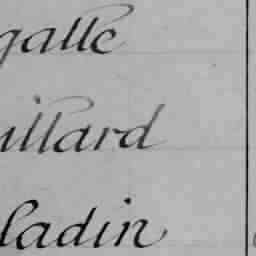 galle
illard
ladin